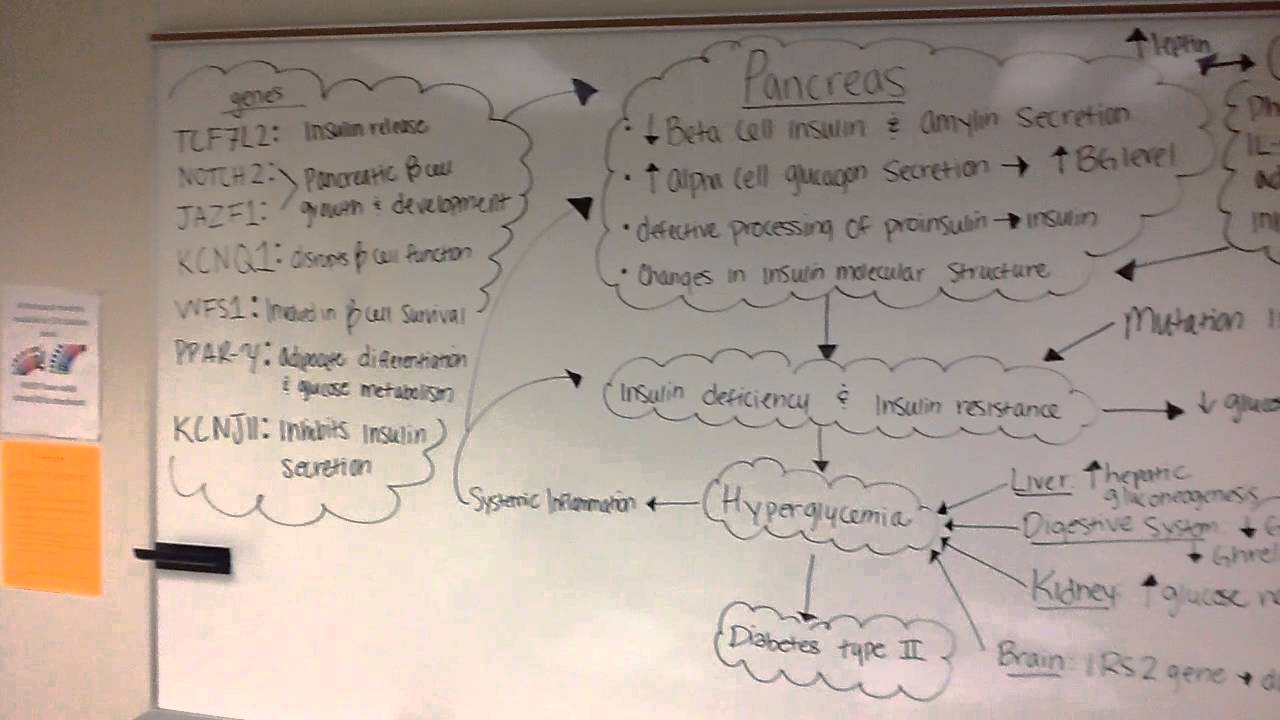 genes
TCF7L2: Insulin release
NOTCH2: Pancreatic β cell
JAZF1: growth & development
KCNQ1: disrupts β cell function
WFS1: Involved in β cell survival
PPAR-γ: adipocyte differentiation
& glucose metabolism
KCNJ11: Inhibits Insulin
Secretion
↑ leptin
Pancreas
• ↓ Beta cell insulin & amylin secretion
• ↑ alpha cell glucagon secretion → ↑ BG level
• defective processing of proinsulin → insulin
• Changes in insulin molecular structure
IL-
Mutation
Insulin deficiency & Insulin resistance
↓
Systemic Inflammation
Hyperglycemia
Liver: ↑ hepatic
gluconeogenesis
Digestive System ↓
↓ Ghrel
Kidney: ↑ glucose
Brain: IRS2 gene →
Diabetes type II